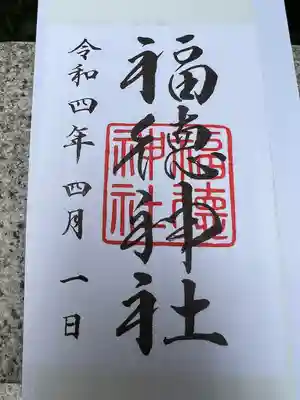 福徳神社
福徳神社
令和四年 四月 一日